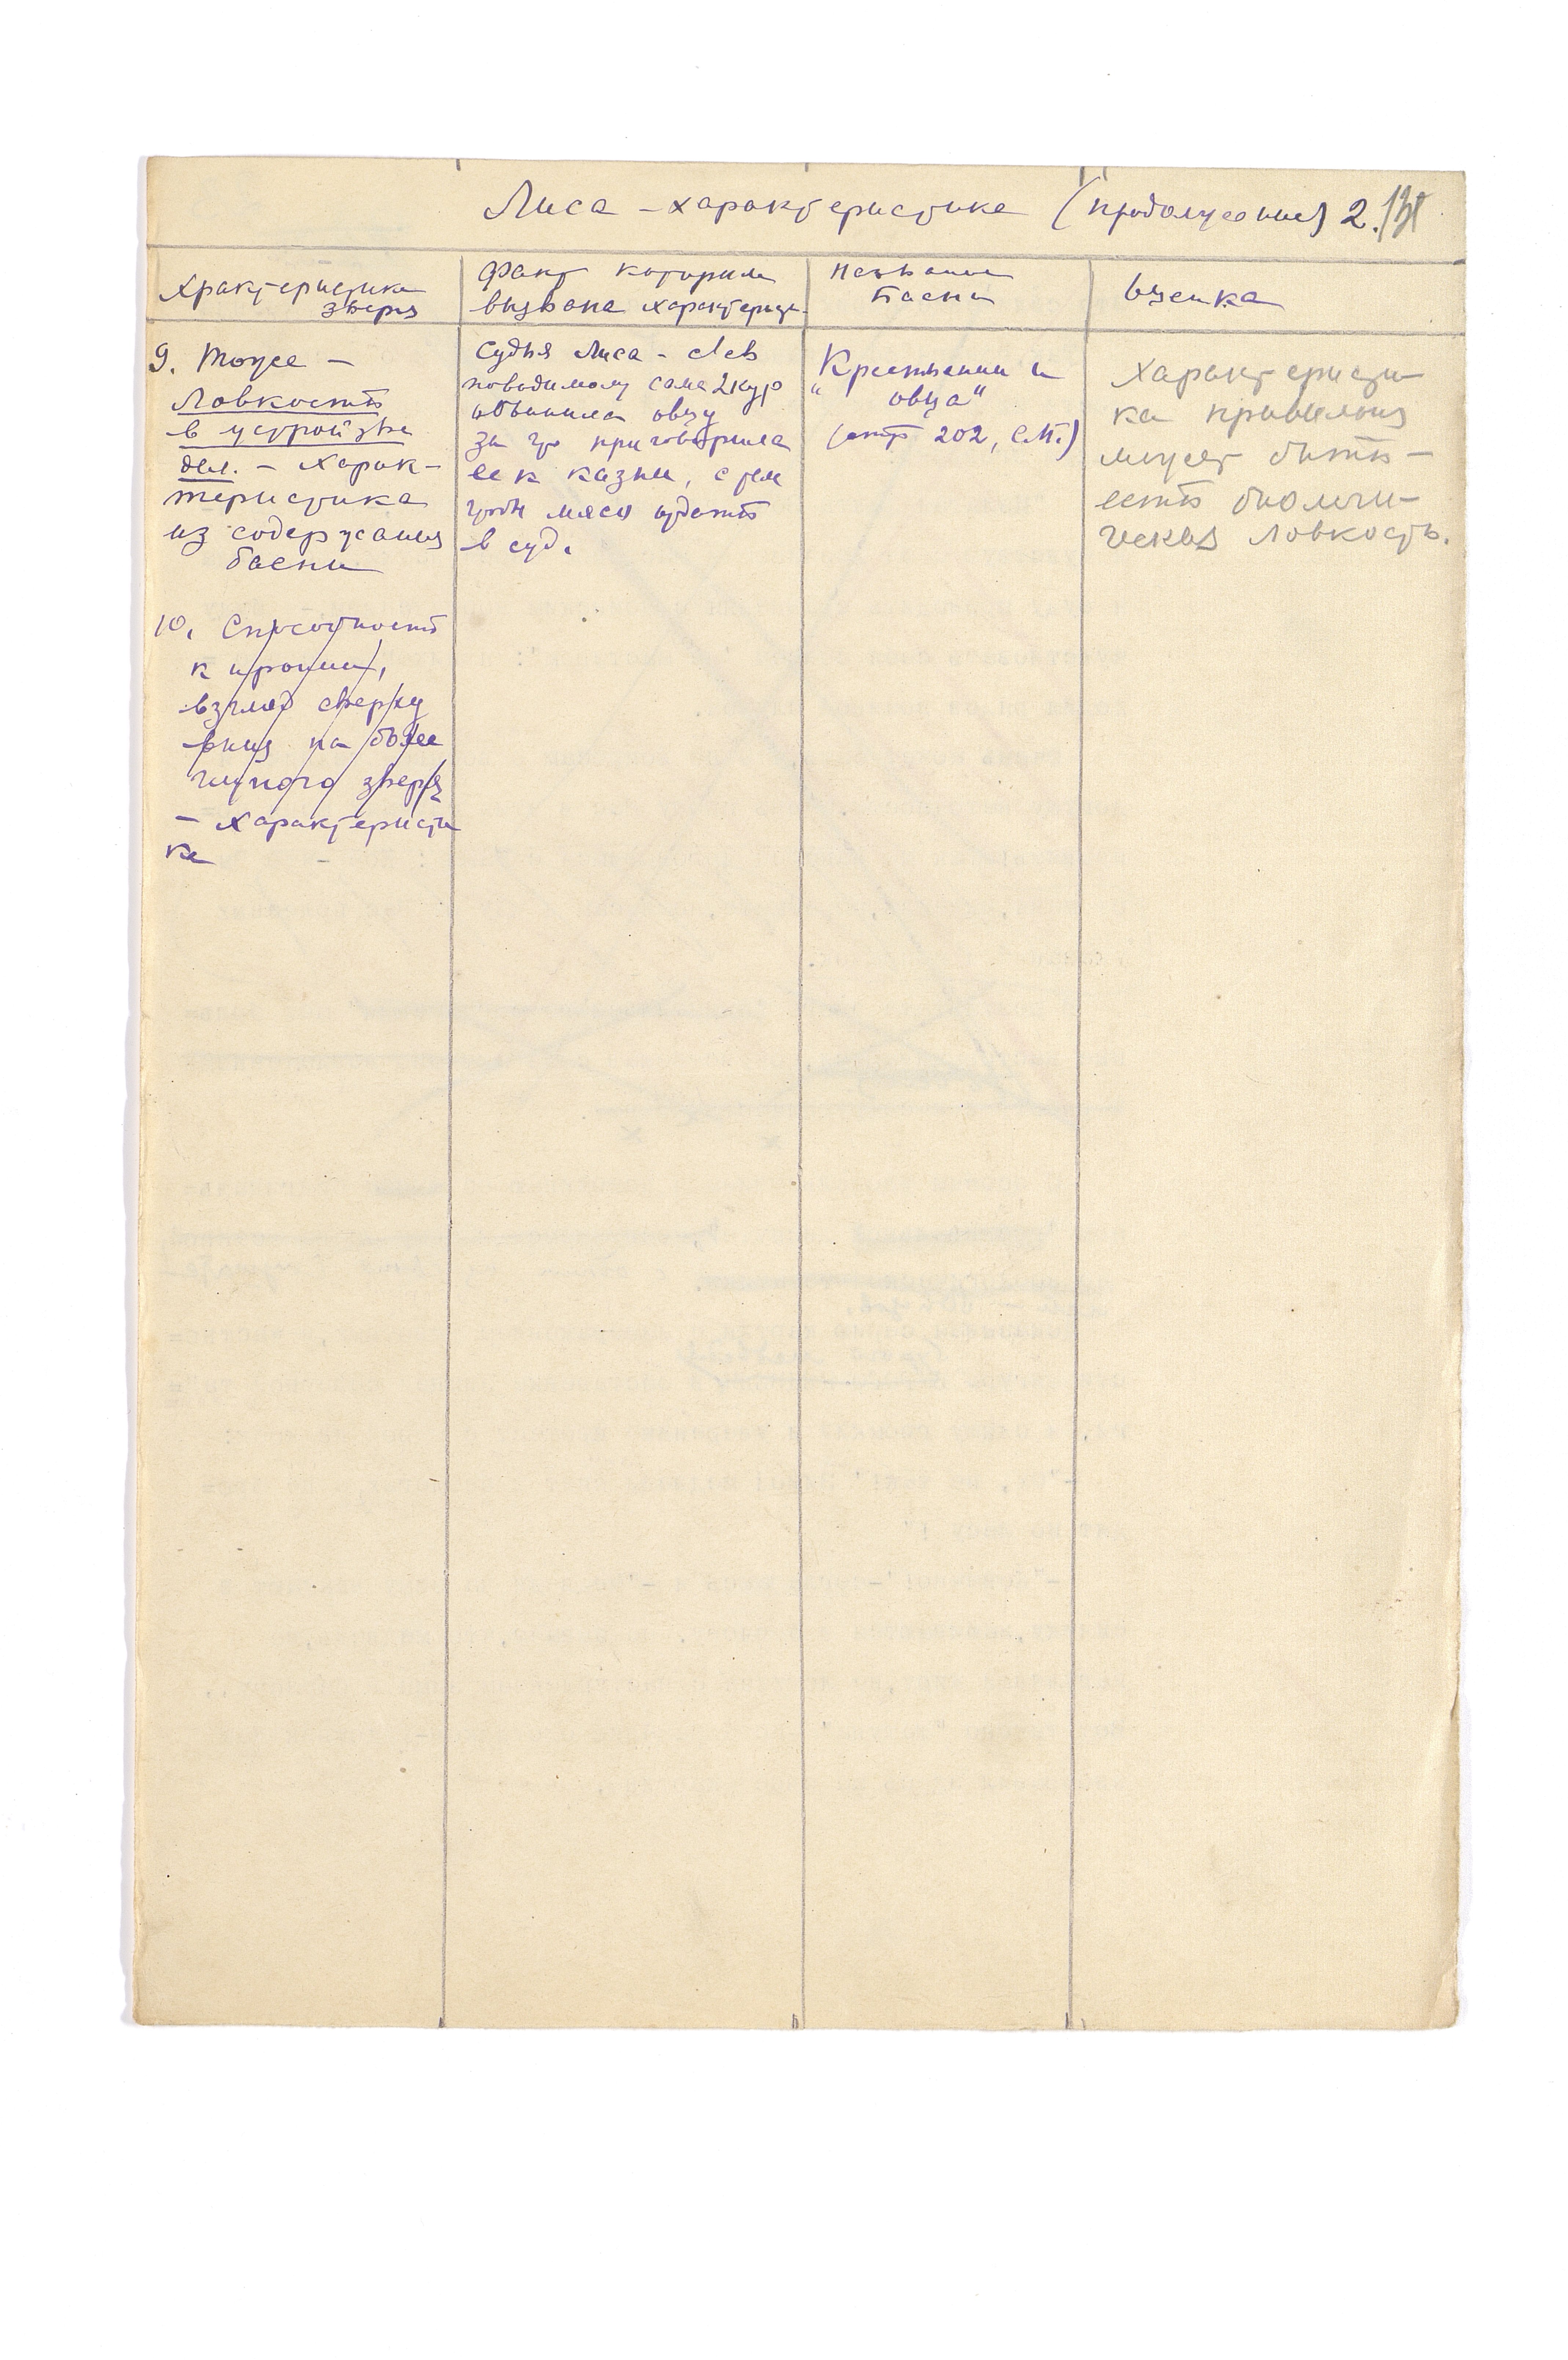 Лиса – характеристика (продолжение) 2.
Храктеристика
зверя
Факт которым
вызвана характерист.
Название
Басни
Оценка
9. Тоже –
Ловкость
в устройстве
дел. – Харак-
теристика
из содержания
басни
Судья Лиса – съев
повидимому сама 2 кур
обвинила овцу
за что приговорила
ее к казни, с тем
чтобы мясо отдать
в суд.
Крестьянин и
„ овца"
(стр 202, с.М.)
Характеристи-
ка правильная
может быть –
есть биологи-
ческая ловкость.
10. Способность
к иронии,
взгляд сверху
вниз на более
глупого зверя
– характеристи
ка